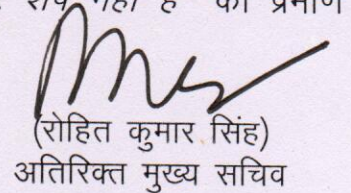 शेष नहीं है" का प्रमाण
(रोहित कुमार सिंह)
अतिरिक्त मुख्य सचिव